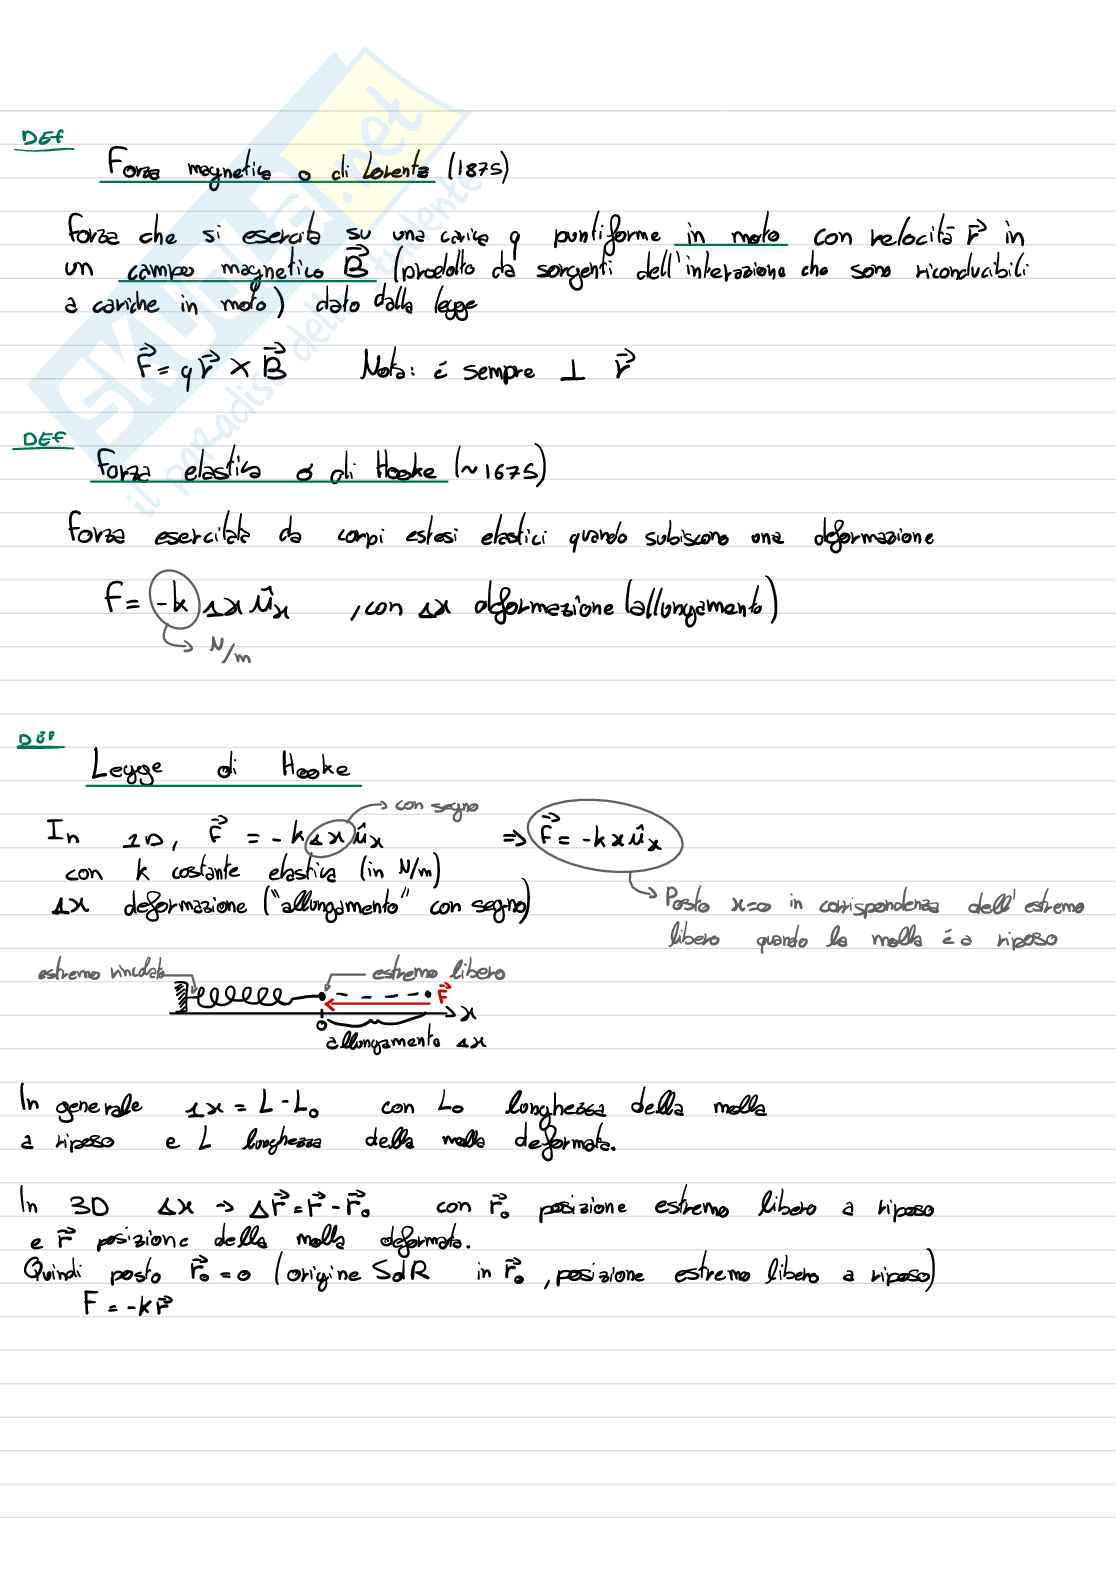 DEF
Forza magnetica o di Lorentz (1875)
forza che si esercita su una carica q puntiforme in moto con velocità v⃗ in
un campo magnetico B⃗ (prodotto da sorgenti dell'interazione che sono riconducibili
a cariche in moto) dato dalla legge
F⃗ = q v⃗ × B⃗ Nota: é sempre ⊥ v⃗
DEF
forza elastica o di Hooke (~1675)
forza esercitata da corpi estesi elastici quando subiscono una deformazione
F = -k Δx û_x , con Δx deformazione (allungamento)
N/m
DEF
Legge di Hooke
con segno
In 1D, F⃗ = -k Δx û_x ⇒ F⃗ = -k x û_x
con k costante elastica (in N/m)
Δx deformazione ("allungamento" con segno)
Posto x=0 in corrispondenza dell'estremo
libero quando la molla é a riposo
estremo vincolato estremo libero
F⃗
x
O
allungamento Δx
In generale Δx = L - L₀ con L₀ lunghezza della molla
a riposo e L lunghezza della molla deformata.
In 3D Δx → Δr⃗ = r⃗ - r⃗₀ con r⃗₀ posizione estremo libero a riposo
e r⃗ posizione della molla deformata.
Quindi posto r⃗₀ = 0 (origine SdR in r⃗₀, posizione estremo libero a riposo)
F = -k r⃗
SKUOLA.net
il paradiso dello studente